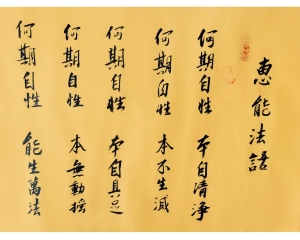 惠能法語
何期自性 本自清淨
何期自性 本不生滅
何期自性 本自具足
何期自性 本無動搖
何期自性 能生萬法